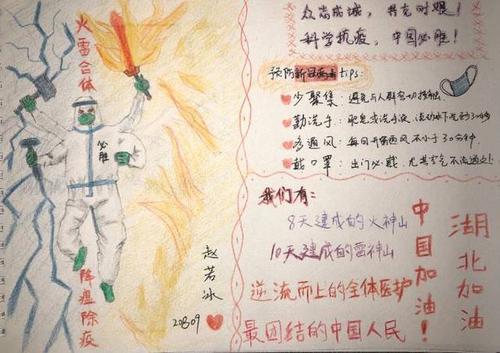 火雷合体
必胜
降瘟除疫
赵若冰
20809
众志成城，共克时艰！
科学抗疫，中国必胜！
预防新冠病毒tips：
少聚集：避免与人群密切接触
勤洗手：肥皂或洗手液，流动水下洗
多通风：每日开窗通风不小于30分钟.
戴口罩：出门必戴，尤其空气不流通处！
我们有：
8天建成的火神山
10天建成的雷神山
逆流而上的全体医护
最团结的中国人民
中国加油！
湖北加油